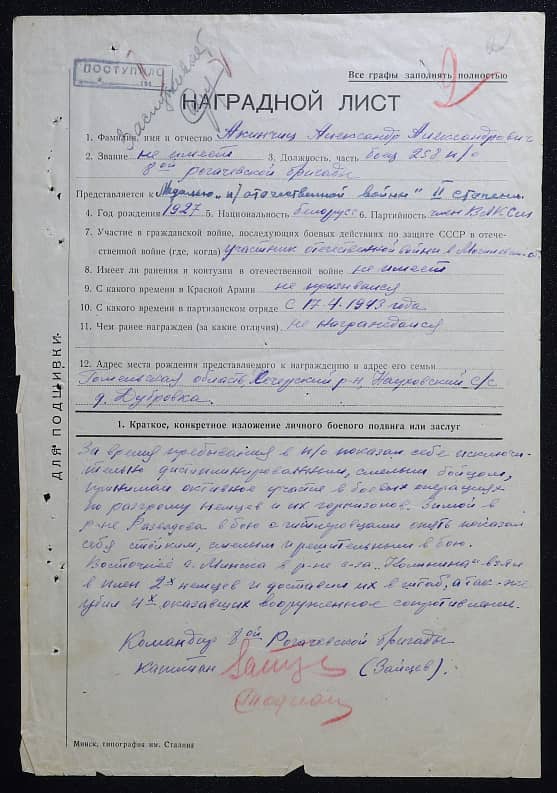 ПОСТУПИЛО
194
Заслуживает
Все графы заполнять полностью
2
НАГРАДНОЙ ЛИСТ
1. Фамилия, имя и отчество Акинчиц Александр Александрович
2. Звание не имеет 3. Должность, часть боец 258 п/о
8ой рогачевской бригады
Представляется к медалью „п/отечественной войны" II степени
4. Год рождения 1927 5. Национальность белорусс 6. Партийность член ВЛКСМ
7. Участие в гражданской войне, последующих боевых действиях по защите СССР в отече-
ственной войне (где, когда) участник отечественной войны в
8. Имеет ли ранения и контузии в отечественной войне не имеет
9. С какого времени в Красной Армии не призывался
10. С какого времени в партизанском отряде с 17.4.1943 года
11. Чем ранее награжден (за какие отличия) не награждался
12. Адрес места рождения представляемого к награждению и адрес его семьи
Гомельская область, р-н с/с
д. Дубровка.
ДЛЯ ПОДШИВКИ
1. Краткое, конкретное изложение личного боевого подвига или заслуг
За время пребывания в п/о показал себя исключи-
тельно дисциплинированным, смелым бойцом,
принимал активное участие в боевых операциях
по разгрому немцев и их гарнизонов. Зимой в
р-не в бою с гитлеровцами опять показал
себя стойким, смелым и решительным в бою.
Восточнее г. Минска в р-не с-за взял
в плен 2х немцев и доставил их в штаб, а так-же
убил 4х оказавших вооруженное сопротивление.
Командир 8ой Рогачевской бригады
капитан (Зайцев).
Минск, типография им. Сталина